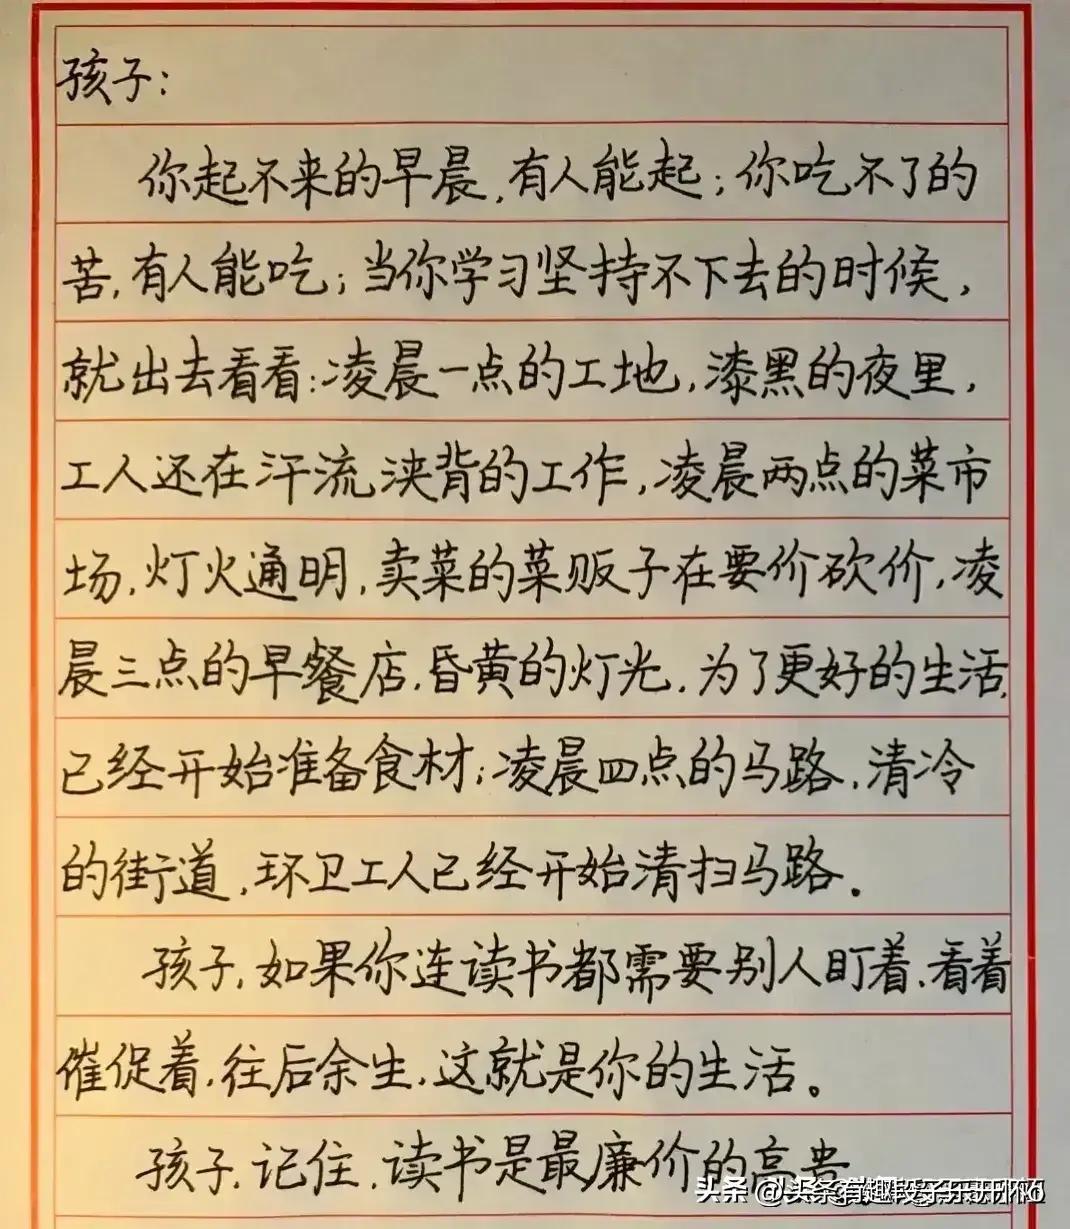 孩子：
你起不来的早晨,有人能起；你吃不了的
苦,有人能吃；当你学习坚持不下去的时候,
就出去看看：凌晨一点的工地,漆黑的夜里,
工人还在汗流浃背的工作,凌晨两点的菜市
场,灯火通明,卖菜的菜贩子在要价砍价,凌
晨三点的早餐店,昏黄的灯光,为了更好的生活,
已经开始准备食材；凌晨四点的马路,清冷
的街道,环卫工人已经开始清扫马路。
孩子,如果你连读书都需要别人盯着,看着
催促着,往后余生,这就是你的生活。
孩子,记住,读书是最廉价的高贵
头条